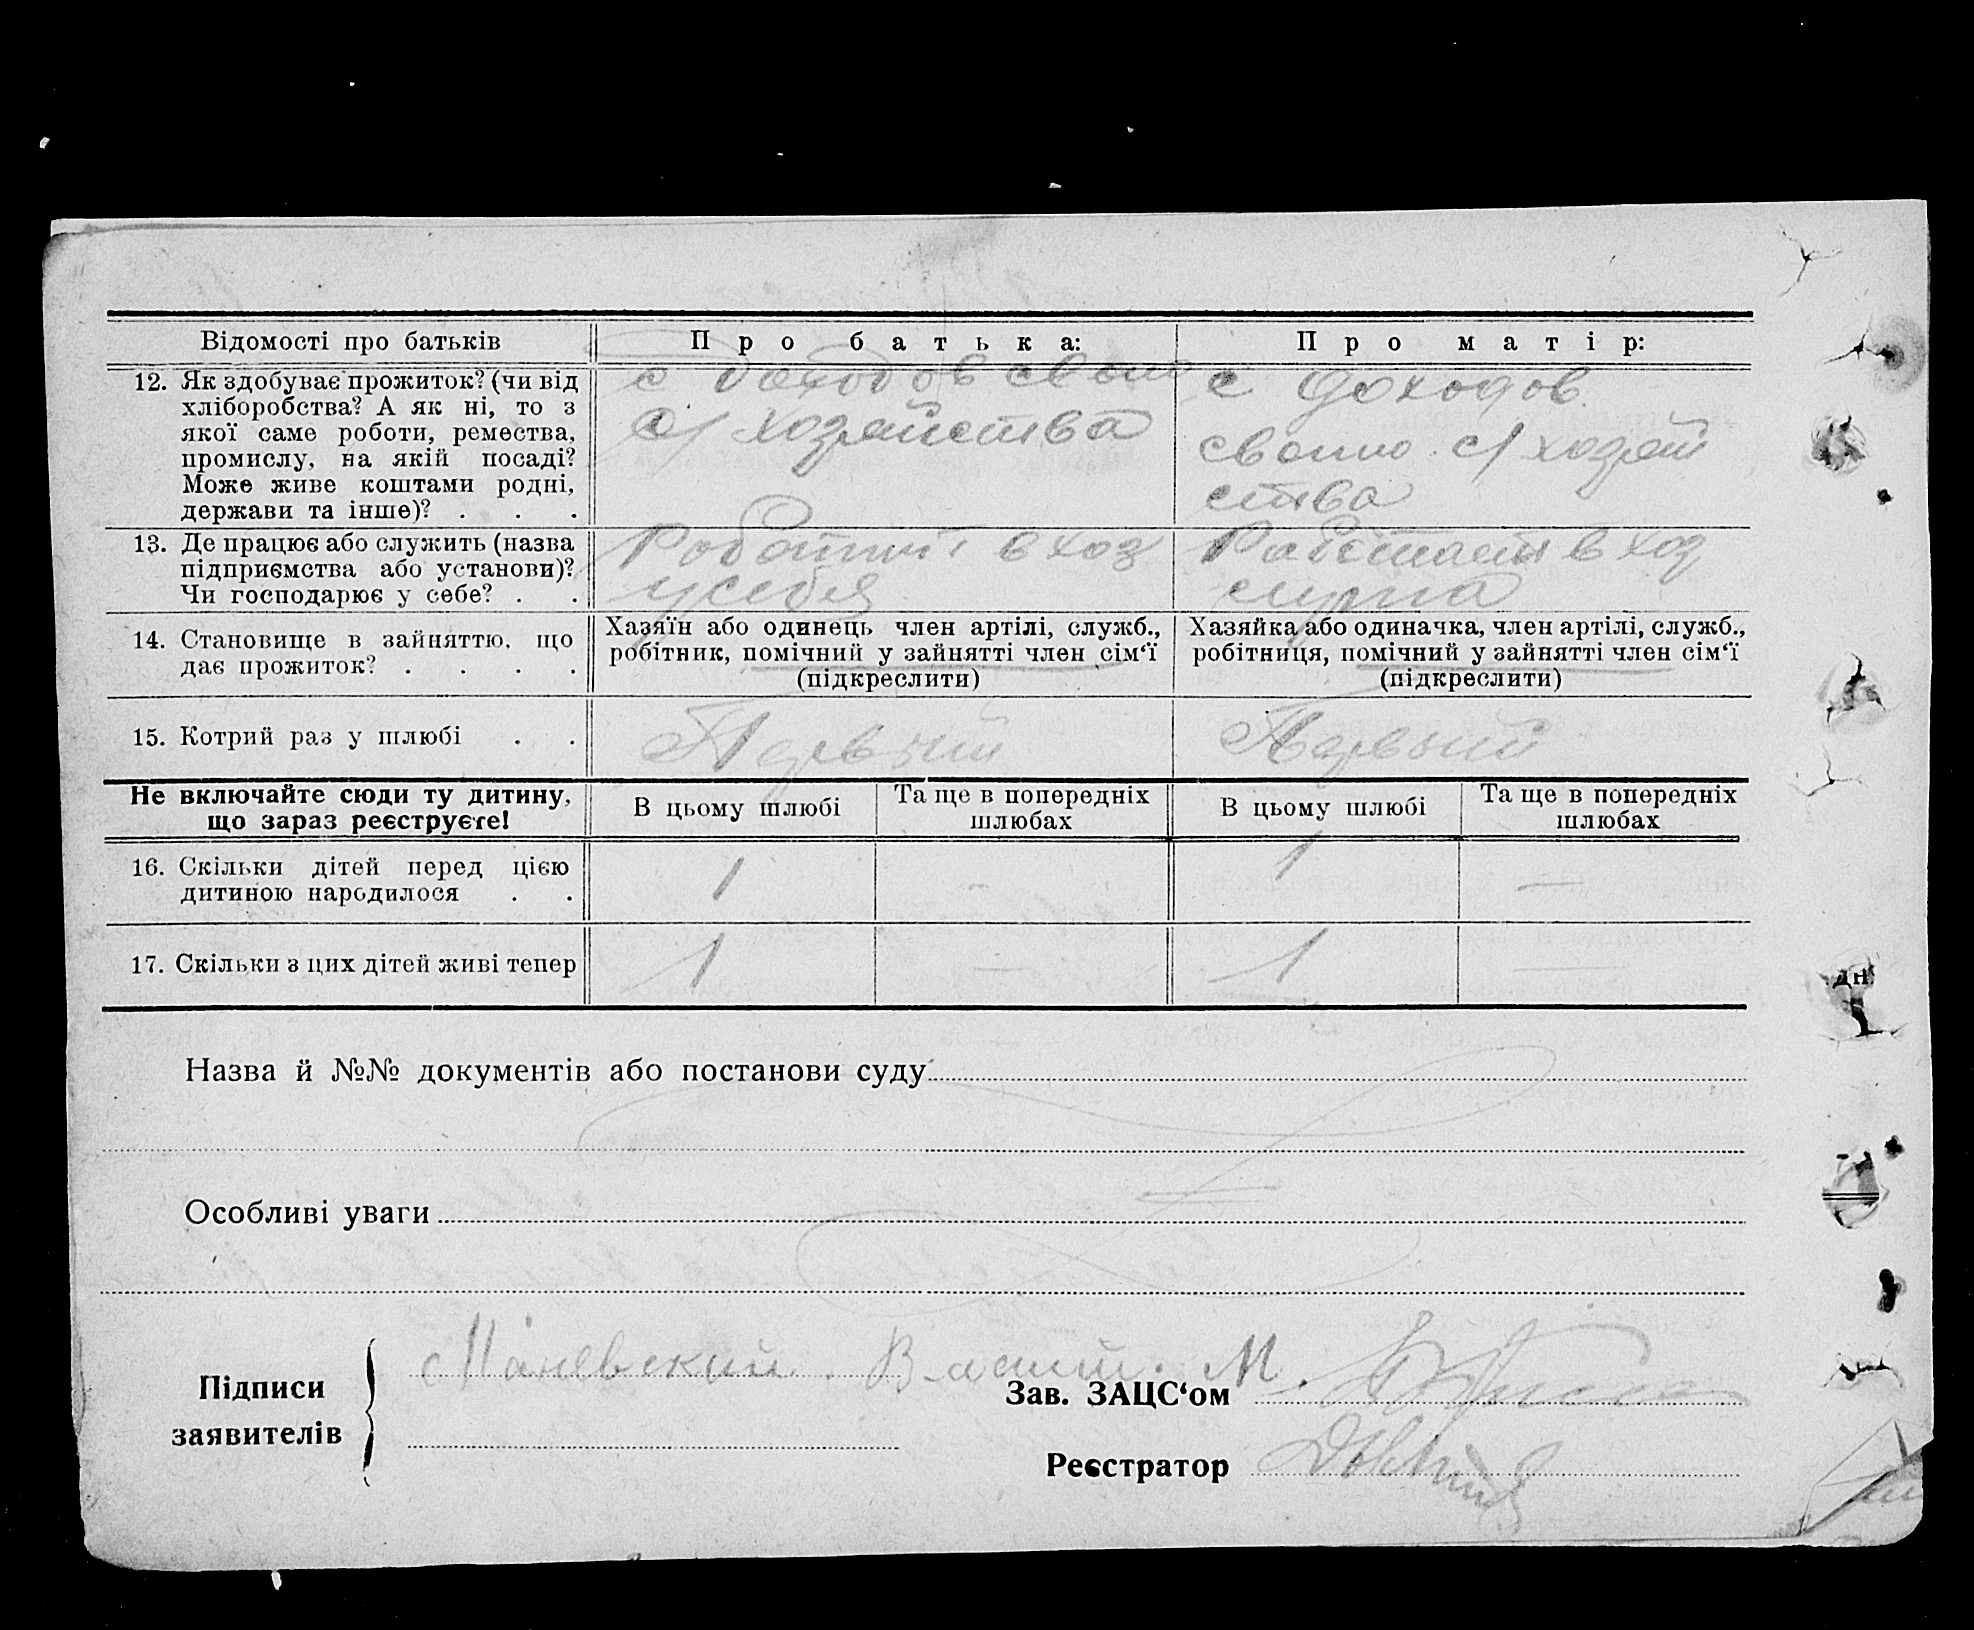 Відомості про батьків
Про батька:
Про матір:
12. Як здобуває прожиток? (чи від
хліборобства? А як ні, то з
якої саме роботи, ремества,
промислу, на якій посаді?
Може живе коштами родні,
держави та інше)? . . .
с доходов свого
с/хозяйства
с доходов
своего с/хозяй
ства
13. Де працює або служить (назва
підприємства або установи)?
Чи господарює у себе? . .
Работает в хоз
у себя
Работает в хоз
14. Становище в зайняттю, що
дає прожиток? . . . .
Хазяїн або одинець член артілі, служб.,
робітник, помічний у зайнятті член сім‘ї
(підкреслити)
Хазяйка або одиначка, член артілі, служб.,
робітниця, помічний у зайнятті член сім‘ї
(підкреслити)
15. Котрий раз у шлюбі . .
Первый
Первый
Не включайте сюди ту дитину,
що зараз реєструєте!
В цьому шлюбі
Та ще в попередніх
шлюбах
В цьому шлюбі
Та ще в попередніх
шлюбах
16. Скільки дітей перед цією
дитиною народилося . .
1
-
1
—
17. Скільки з цих дітей живі тепер
1
—
1
—
дн.
Назва й №№ документів або постанови суду
Особливі уваги
Підписи
заявителів
Маневский М.
Зав. ЗАЦС‘ом
Реєстратор